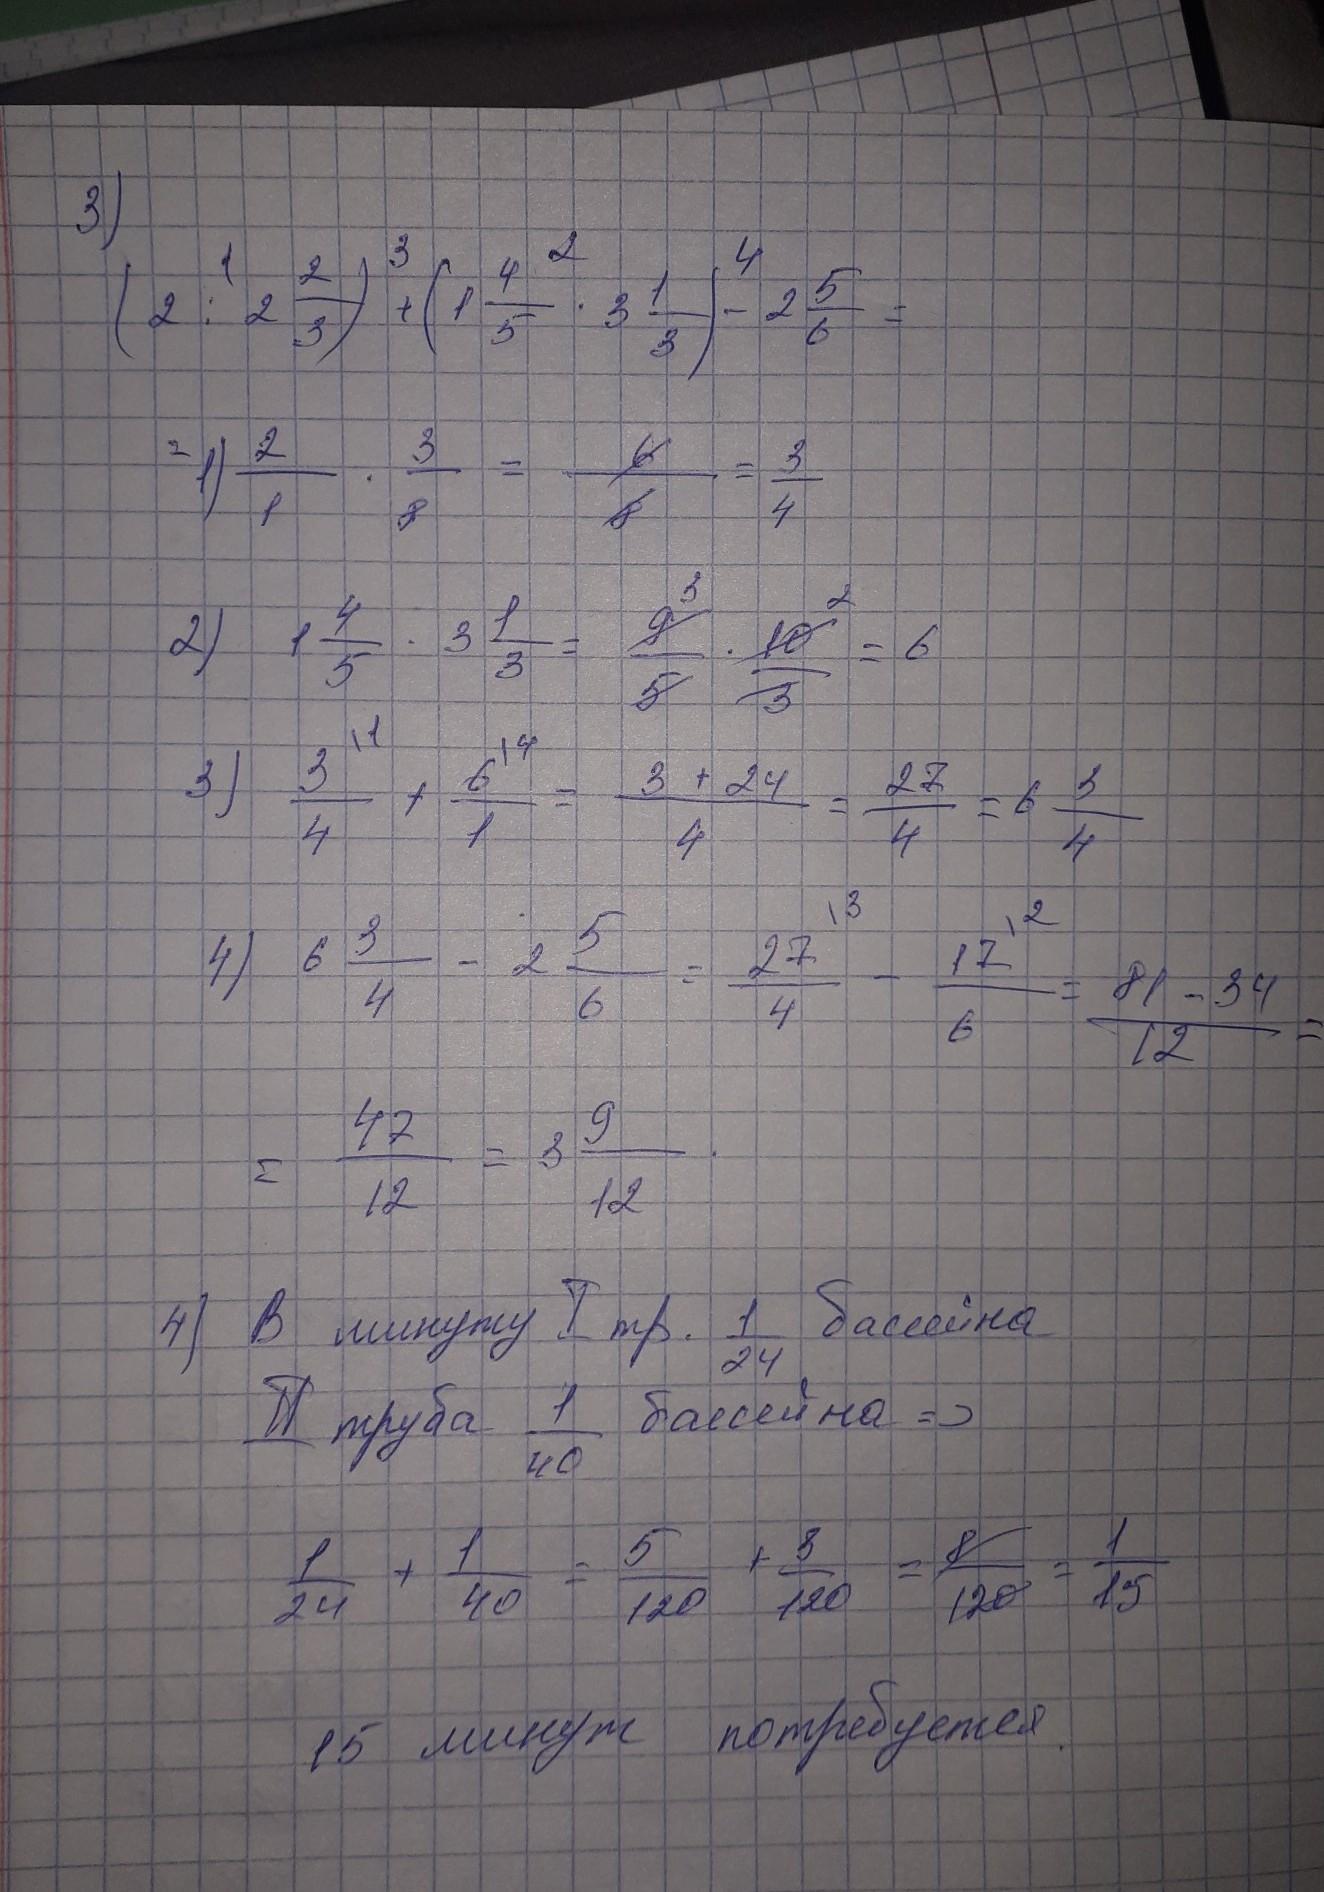 3)
(2 :¹ 2 2/3) +³ (1 4/5 ·² 3 1/3) -⁴ 2 5/6 =
= 1) 2/1 · 3/8 = 6/8 = 3/4
2) 1 4/5 · 3 1/3 = 9³/5 · 10²/3 = 6
3) 3\1/4 + 6\4/1 = 3 + 24/4 = 27/4 = 6 3/4
4) 6 3/4 - 2 5/6 = 27\3/4 - 17\2/6 = 81 - 34/12 =
= 47/12 = 3 9/12.
4) В минуту I тр. 1/24 бассейна
II труба 1/40 бассейна =>
1/24 + 1/40 = 5/120 + 3/120 = 8/120 = 1/15
15 минут потребуется.